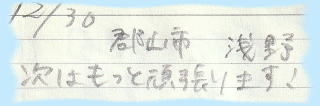 12/30
郡山市 浅野
次はもっと頑張ります!